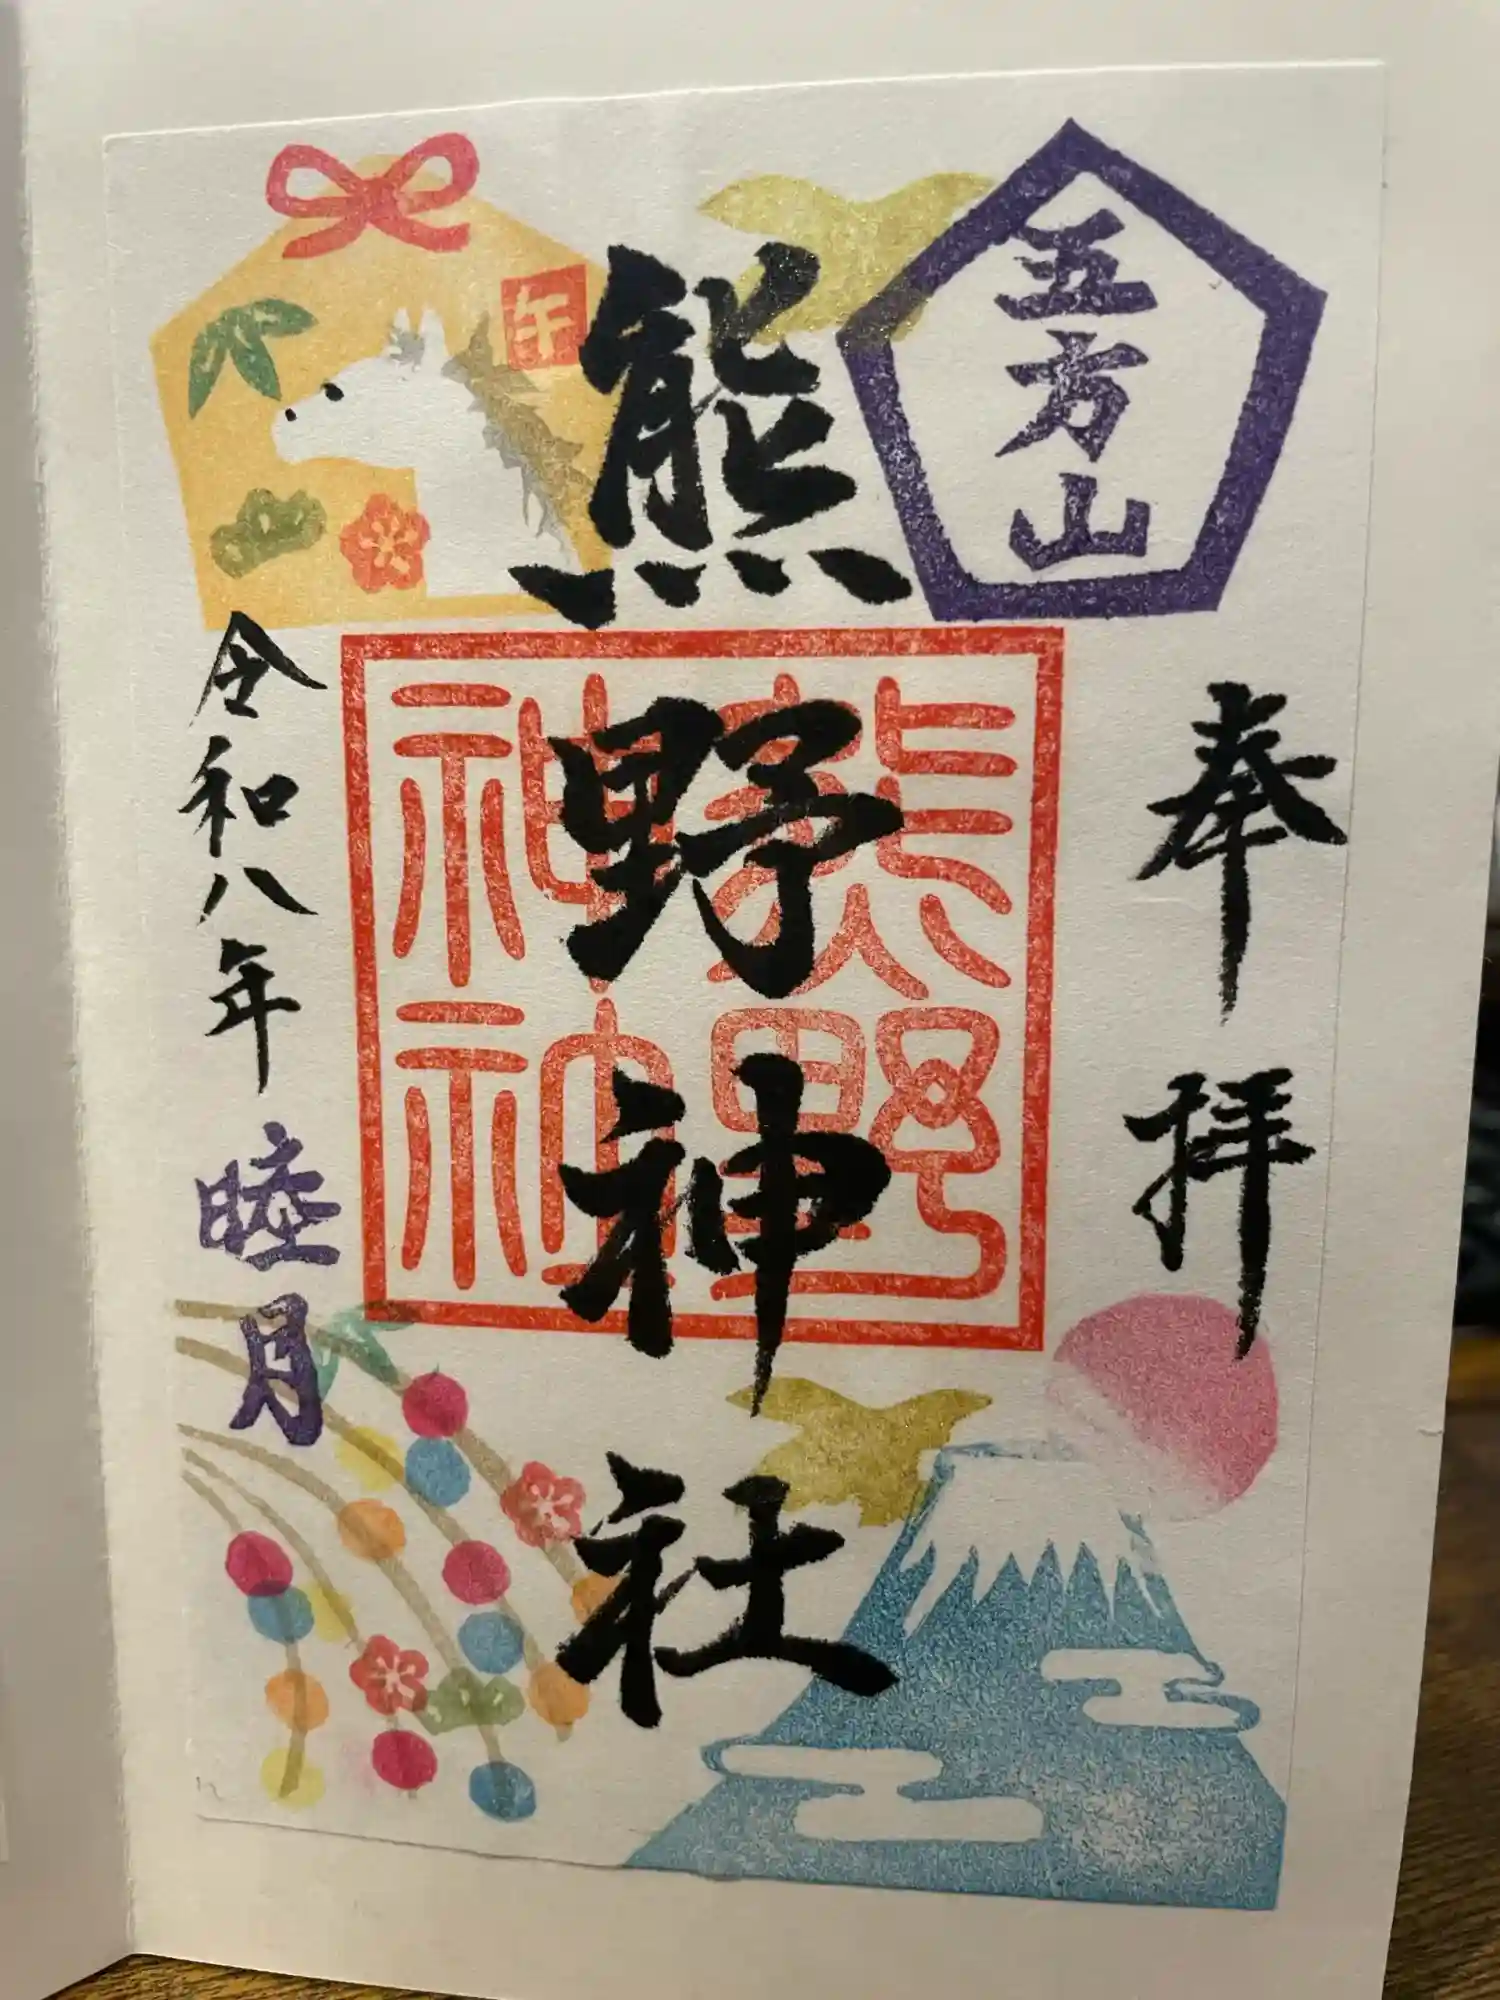 五方山
奉拝
熊野神社
熊野
神社
午
令和八年
睦月